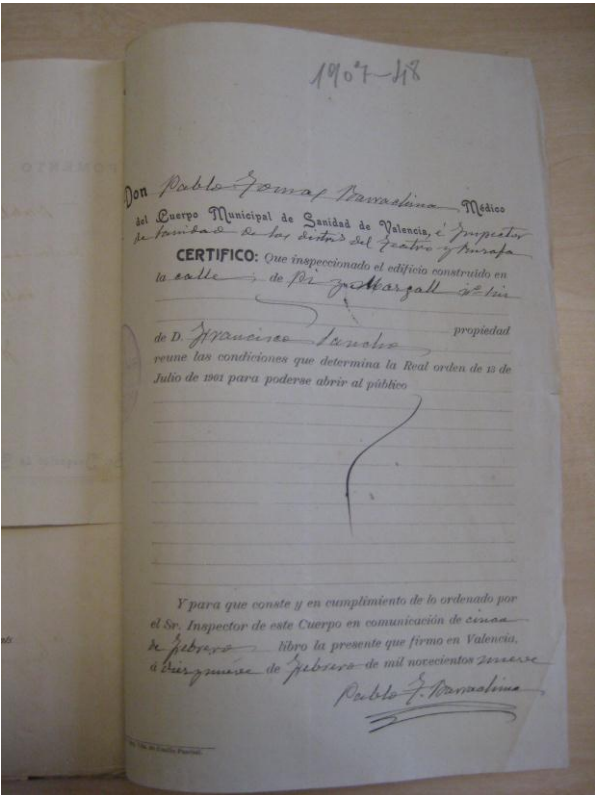 1907-48
Don Pablo Tomas Barrachina Médico
del Cuerpo Municipal de Sanidad de Valencia, é Inspector
de Sanidad de los distrs del Teatro y Ruzafa
CERTIFICO: Que inspeccionado el edificio construído en
la calle de Pi y Margall nº
propiedad
de D. Francisco Sancho
reune las condiciones que determina la Real orden de 13 de
Julio de 1901 para poderse abrir al público
Y para que conste y en cumplimiento de lo ordenado por
el Sr. Inspector de este Cuerpo en comunicación de cinco
de febrero libro la presente que firmo en Valencia,
á diez y nueve de febrero de mil novecientos nueve
Pablo T. Barrachina
FOMENTO